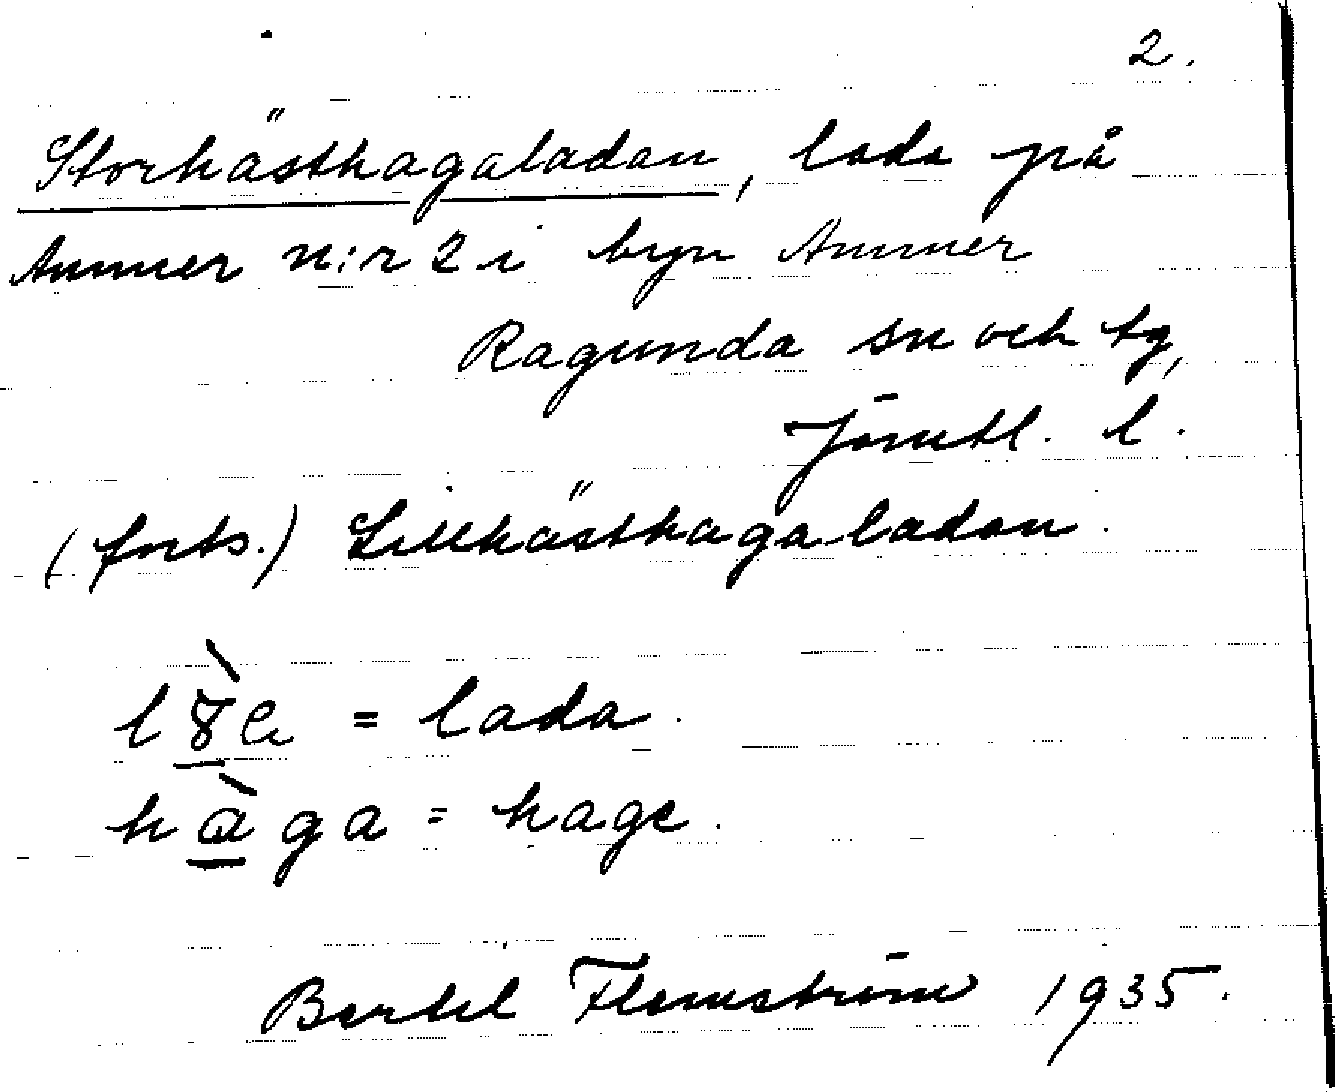 2.
Storhästhagaladan, lada på
Ammer n:r 2 i byn Ammer
Ragunda sn och tg,
Jämtl. l.
(forts.) Lillhästhagaladan.
= lada.
hàga = hage.
Bertil Flemström 1935.